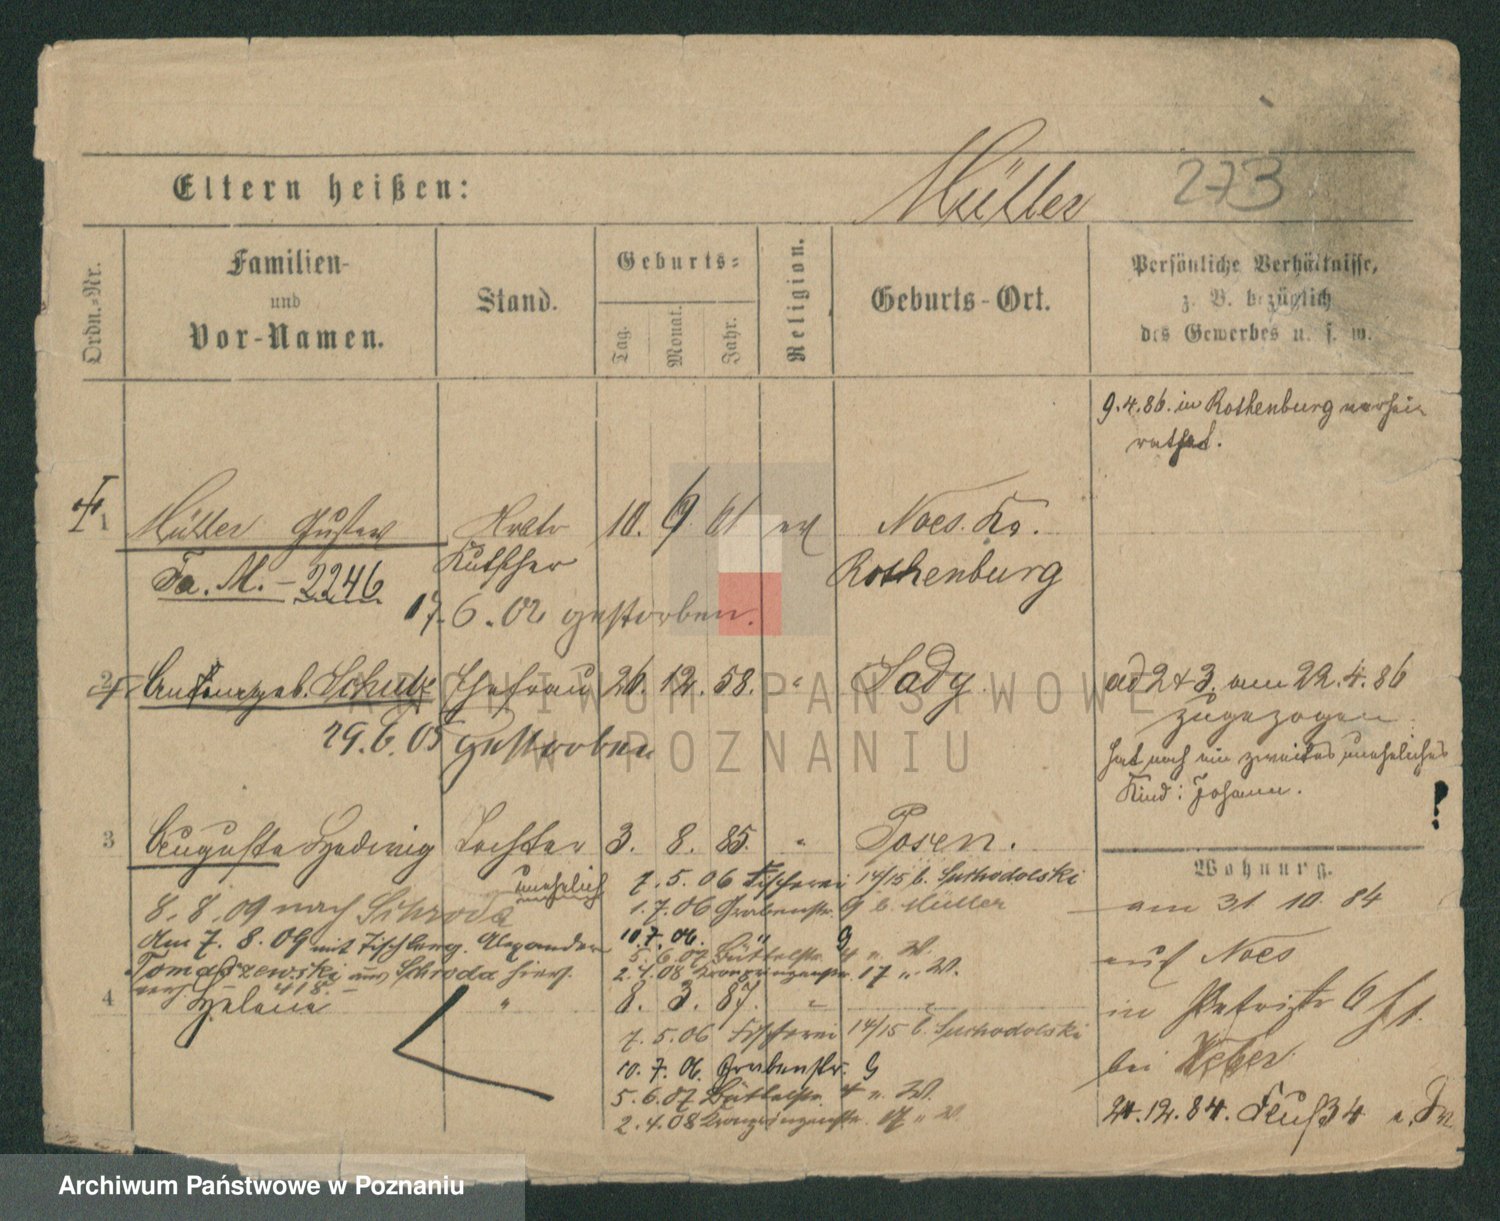 Eltern heißen: Müller 273
Ordn.-Nr.
Familien-
und
Vor-Namen.
Stand.
Geburts-
Tag.
Monat.
Jahr.
Religion.
Geburts-Ort.
Persönliche Verhältnisse,
z. B. bezüglich
des Gewerbes u. s. w.
9.4.86. in Rothenburg verhei-
rathet.
1 Müller Gustav 10. 9. 61 ev Noes. Kr.
Kutscher Rothenburg
Fa. M. - 2246
17.6.02 gestorben.
2 geb. Schulz Ehefrau 26. 12. 58. " Sady
ad 2 & 3. am 22.4.86
zugezogen.
29.6.05 gestorben
hat noch ein zweites uneheliches
Kind: Johann.
3 Auguste Hedwig Tochter 3. 8. 85. " Posen.
unehelich
7.5.06 Fischerei 14/15 b. Suchodolski
8.8.09 nach Schroda
1.7.06 Grabenstr. 9 b. Müller
Am 7.8.09 mit Alexander
10.7.06. " 9
5.6.07 Büttelstr. 4 u. W.
Tomaszewski aus Schroda hier
2.4.08 Kronprinzenstr. 17 u. W.
verh. 418.
4 Helene " 8. 3. 87. "
7.5.06 Fischerei 14/15 b. Suchodolski
10.7.06. Grabenstr. 9
5.6.07 Büttelstr. 4 u. W.
2.4.08 Kronprinzenstr. 17 u. W.
Wohnung.
am 31 10. 84
auf Noes
in Petristr 6
bei Weber
24.12.84.
ARCHIWUM PAŃSTWOWE
W POZNANIU
Archiwum Państwowe w Poznaniu